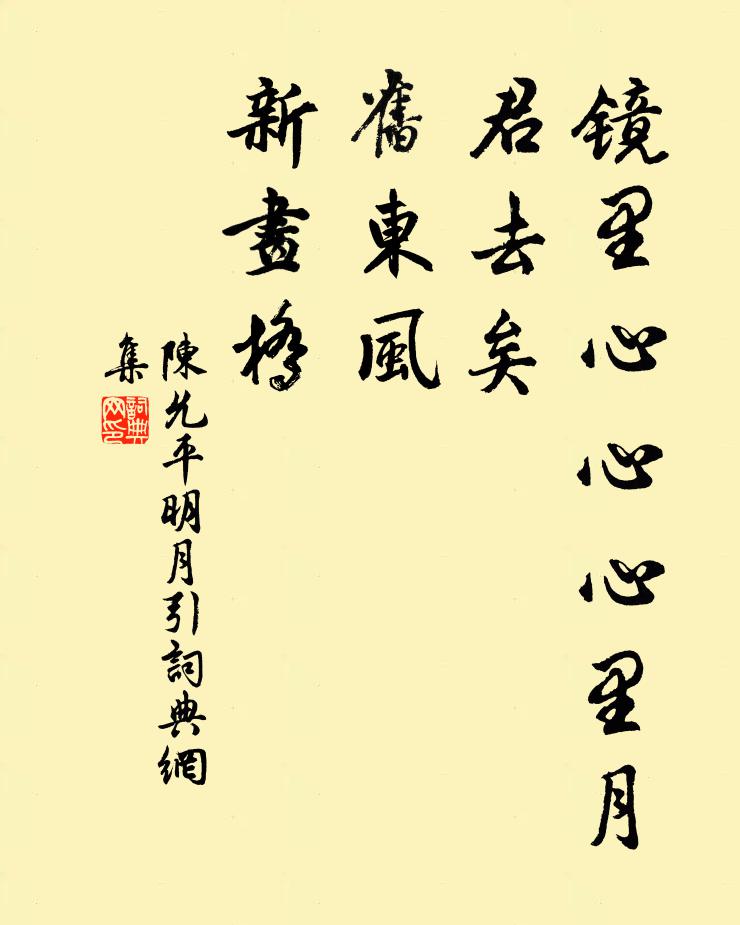 镜里心心心里月
君去矣
舊東風
新畫橋
陳允平明月引詞典網
集
詞典网印